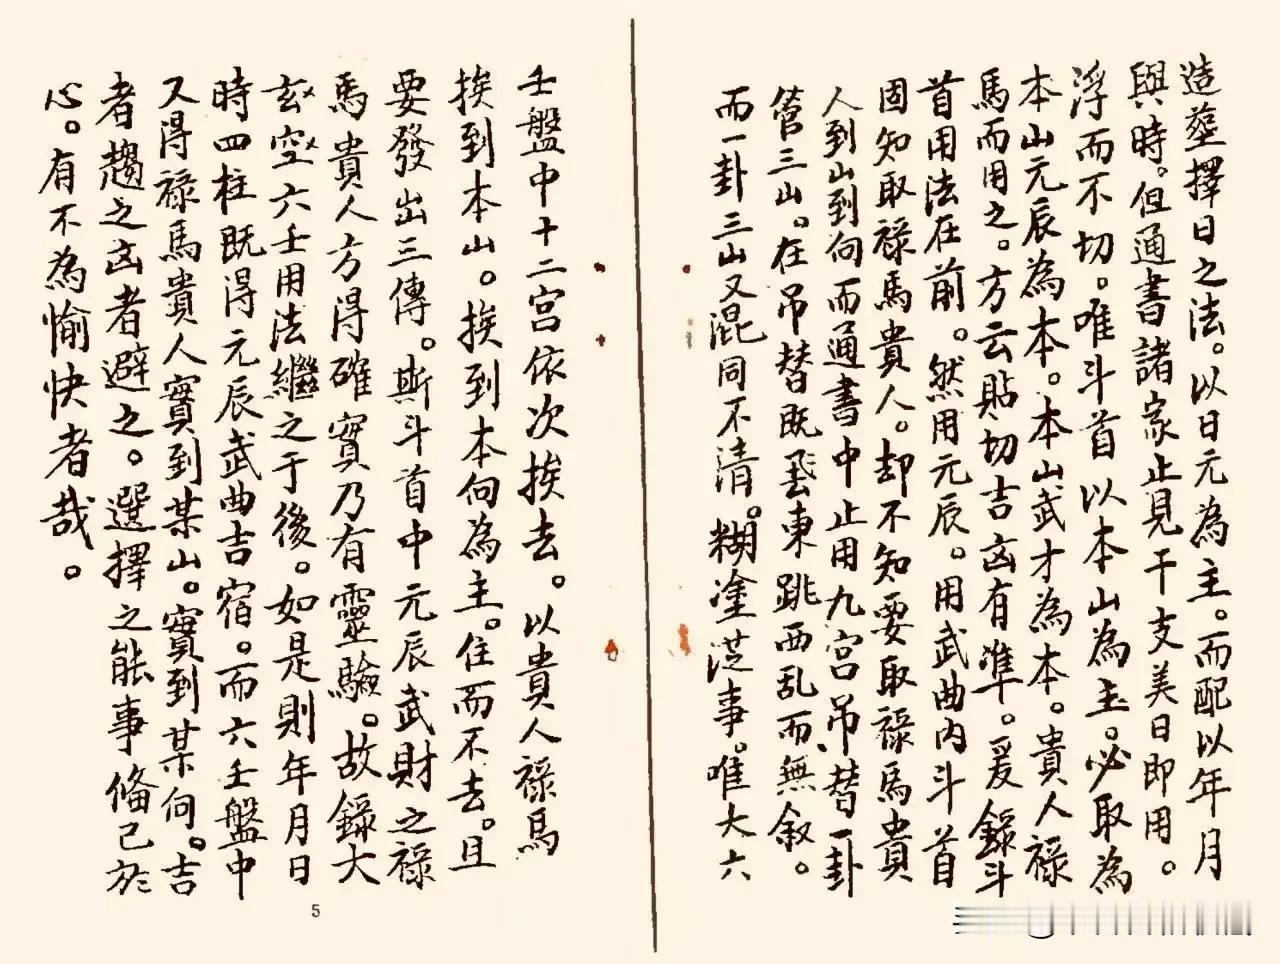 造葬擇日之法。以日元為主。而配以年月
與時。但通書諸家止見干支美日即用。
浮而不切。唯斗首以本山為主。必取為
本山元辰為本。本山武才為本。貴人祿
馬而用之。方云貼切吉凶有準。爰錄斗
首用法在前。然用元辰。用武曲內斗首
固知取祿馬貴人。却不知要取祿馬貴
人到山到向而通書中止用九宮吊替一卦
管三山。在吊替既飛東跳西乱而無敘。
而一卦三山又混同不清。糊塗事。唯大六
壬盤中十二宮依次挨去。以貴人祿馬
挨到本山。挨到本向為主。住而不去。且
要發出三傳。斯斗首中元辰武財之祿
馬貴人方得確實乃有靈驗。故錄大
玄空六壬用法繼之于後。如是則年月日
時四柱既得元辰武曲吉宿。而六壬盤中
又得祿馬貴人實到某山。實到某向。吉
者趨之凶者避之。選擇之能事俻已於
心。有不為愉快者哉。
5